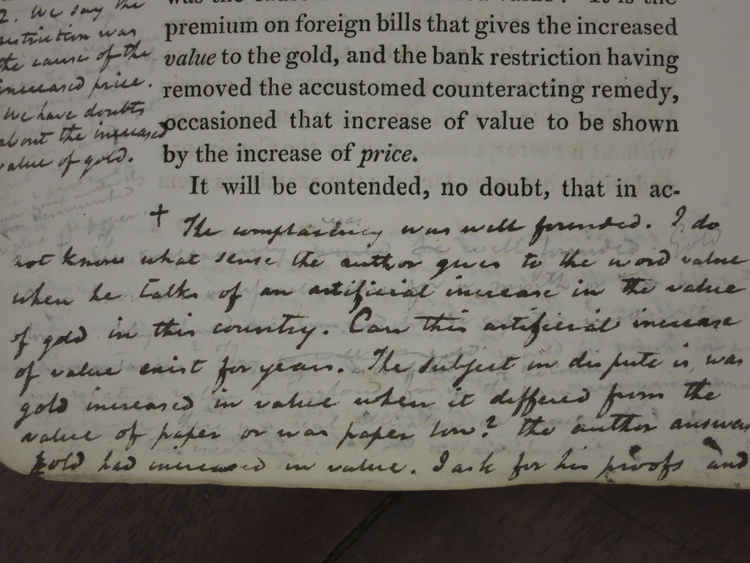 2. We say the
restriction was
the cause of the
increased price.
We have doubts
about the increased
value of gold.
premium on foreign bills that gives the increased
value to the gold, and the bank restriction having
removed the accustomed counteracting remedy,
occasioned that increase of value to be shown
by the increase of price.
It will be contended, no doubt, that in ac-
+ The complacency was well founded. I do
not know what sense the author gives to the word value
when he talks of an artificial increase in the value
of gold in this country. Can this artificial increase
of value exist for years. The subject in dispute is, was
gold increased in value when it differed from the
value of paper or was paper low? the author answers
gold had increased in value. I ask for his proofs and